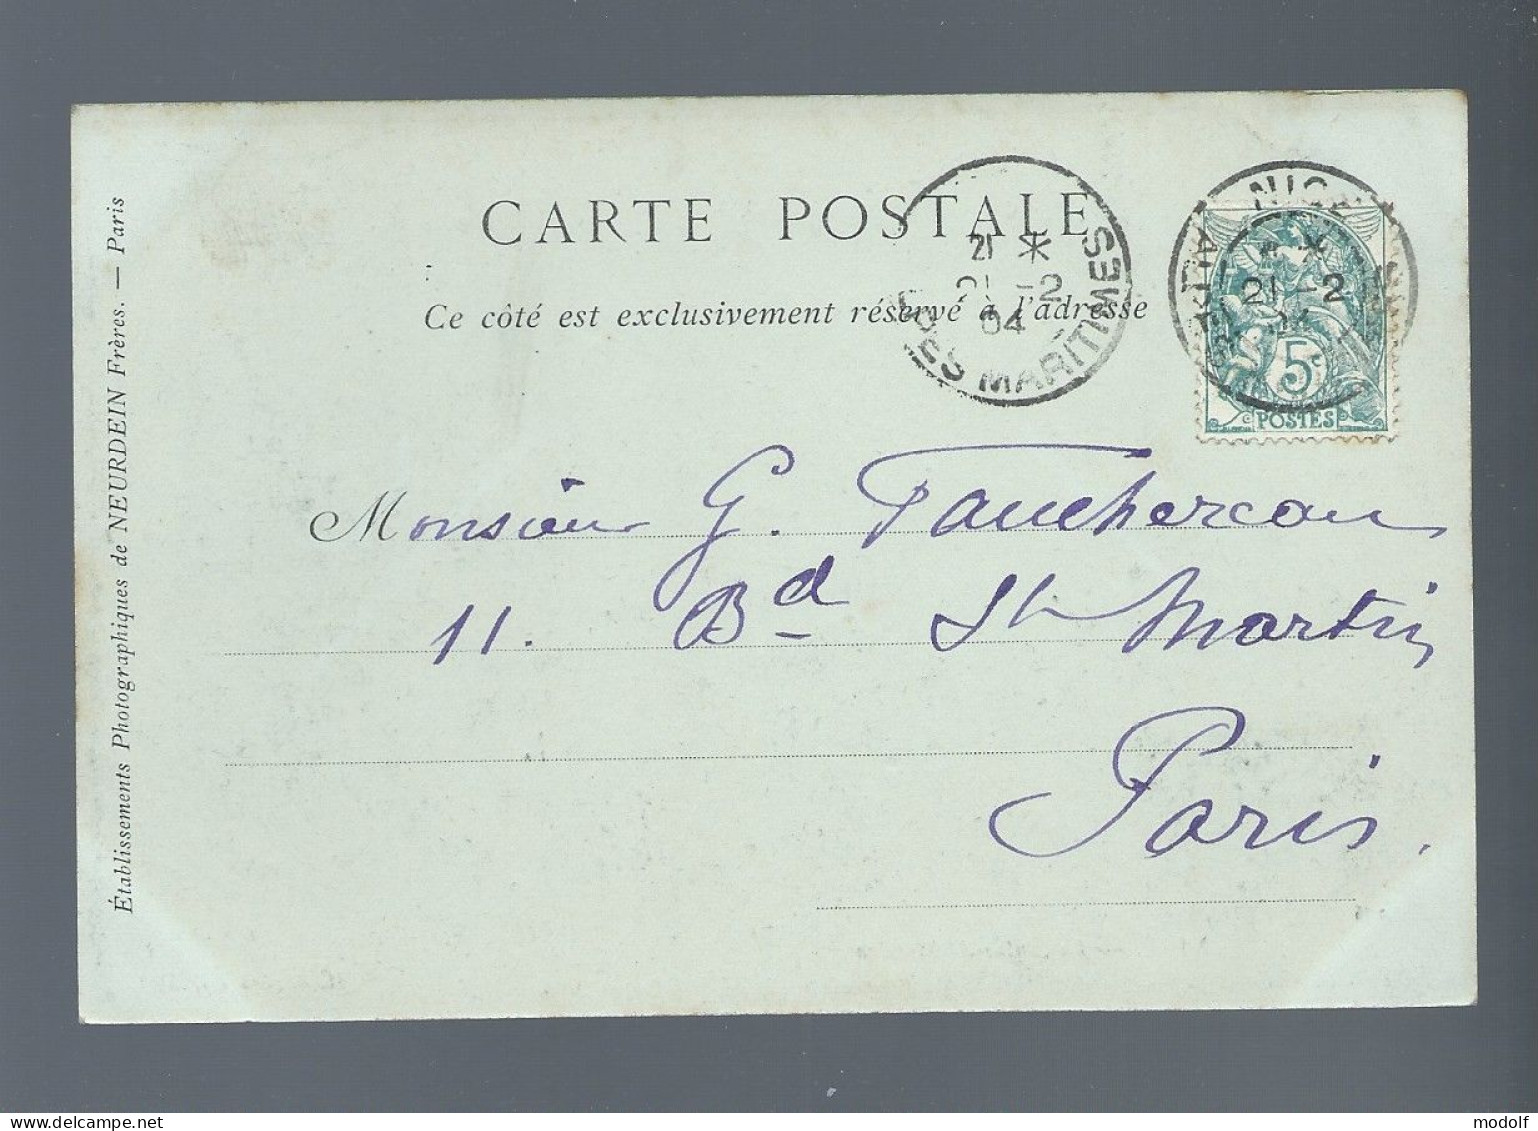 CARTE POSTALE
Ce côté est exclusivement réservé à l'adresse
21 *
21 -2
04
ALPES MARITIMES
NICE
21 -2
04
5c
POSTES
Monsieur G. Fauchereau
11. Bd St Martin
Paris.
Établissements Photographiques de NEURDEIN Frères. — Paris
modolf